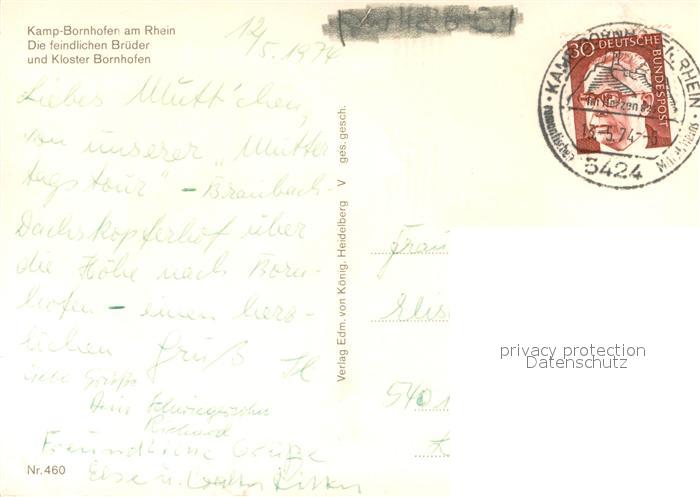 Kamp-Bornhofen am Rhein
Die feindlichen Brüder
und Kloster Bornhofen
12/5.1974
Liebes Mutt'chen,
von unserer "Mutter
tagstour" - Braubach-
Dachskopferhof über
die Höhe nach Born-
hofen - einen herz-
lichen Gruß
liebe Grüße
Dein Schwiegersohn
Richard
Freundliche Grüße
Else u.
Nr. 460
Verlag Edm. von König, Heidelberg V ges. gesch.
30 DEUTSCHE BUNDESPOST
KAMP-BORNHOFEN RHEIN
Im Herzen des
romantischen Mittelrheins
13.-5.74.-6
5424
Frau
Elis
540
privacy protection
Datenschutz